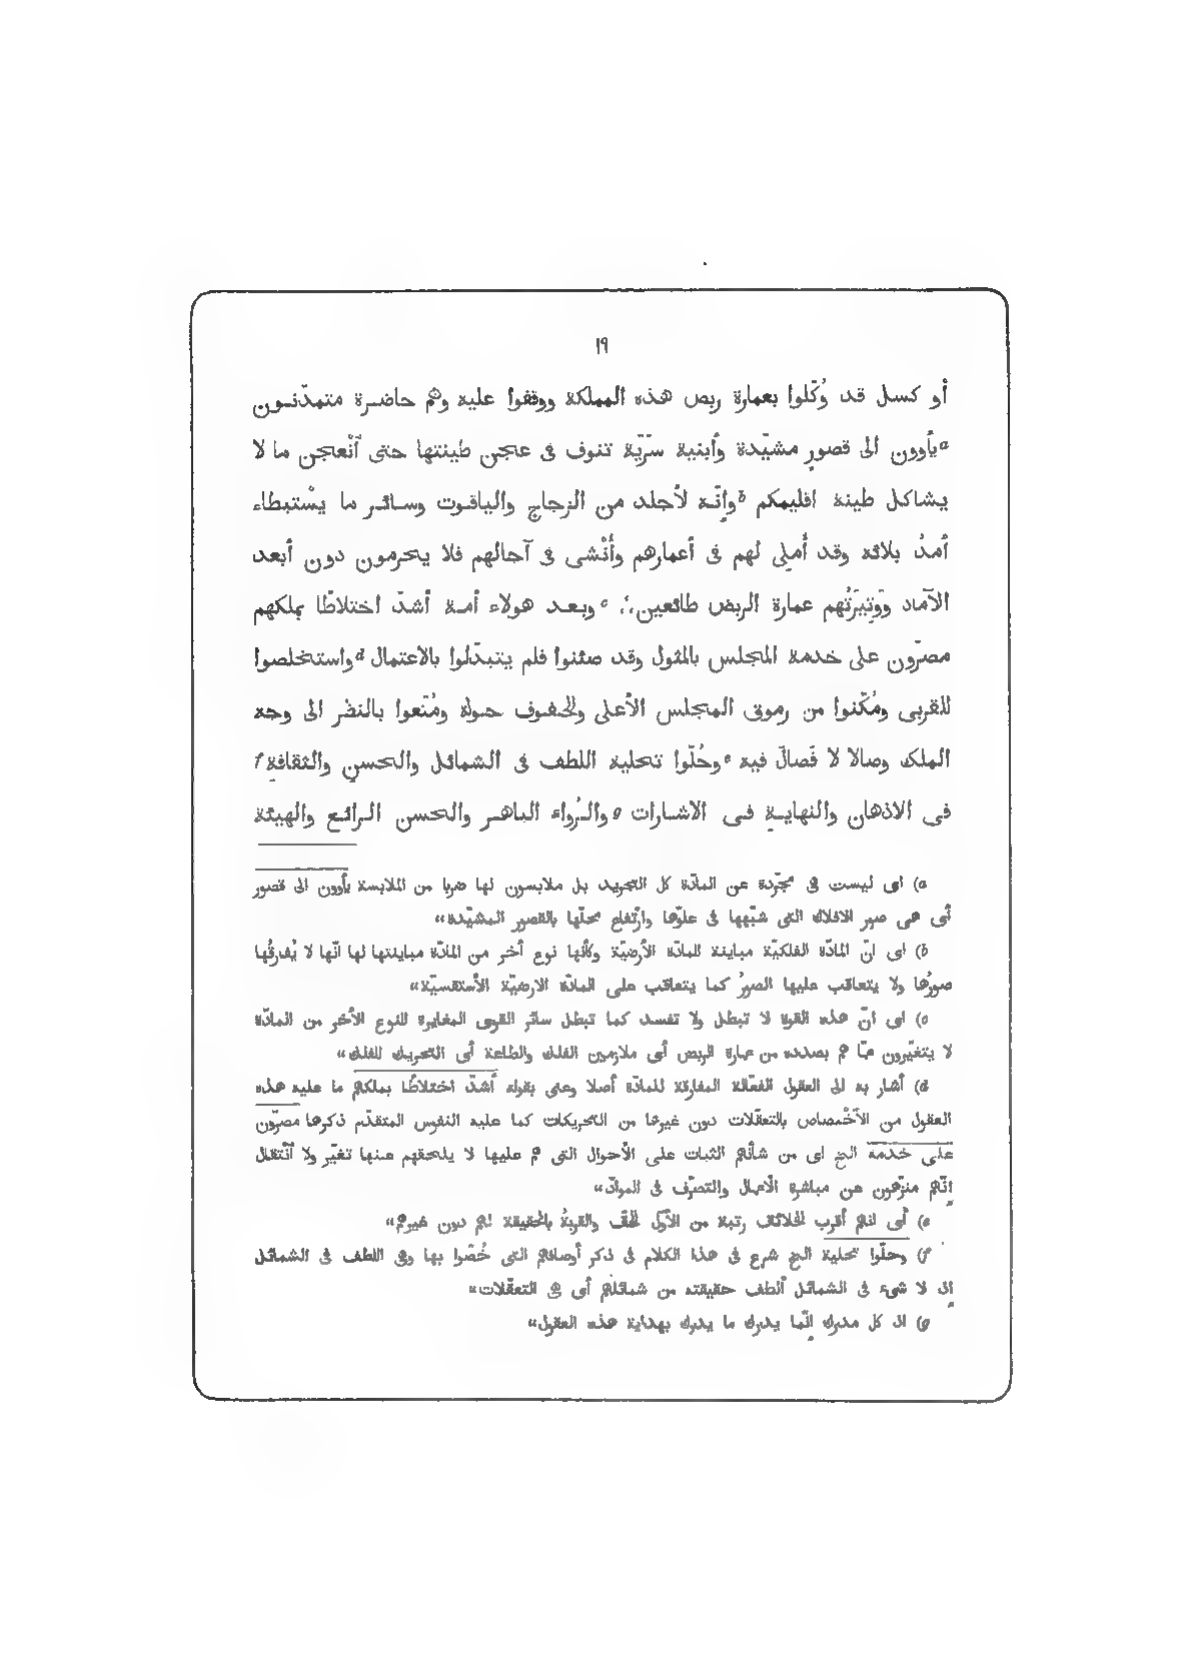 ١٩
أو كسل قد وُكّلوا بعمارة ربص هذه المملكة ووقفوا عليه وهم حاضرة متمدّنون
a يأوون الى قصورٍ مشيّدة وأبنية سرّيّة تنوف فى عجن طينتها حتى ٱنْعجن ما لا
يشاكل طينة اقليمكم b وإنّه لأجلد من الزجاج والياقوت وسائر ما يسْتبطاء
أمدُ بلائه وقد أُملِى لهم فى أعمارهم وأُنْسى فى آجالهم فلا يحرمون دون أبعد
الآماد ووَتِيرَتُهم عمارة الربض طائعين،؛، c وبعد هولاء أمة أشدّ اختلاطًا بملكهم
مصرّون على خدمة المجلس بالمثول وقد صئنوا فلم يتبدّلوا بالاعتمال d واستخلصوا
للقربى ومُكّنوا من رموق المجلس الأعلى والحفوف حوله ومُتّعوا بالنظر الى وجه
الملك وصالا لا فَصالَ فيه e وحُلّوا تحلية اللطف فى الشمائل والحسن والثقافةِ f
فى الاذهان والنهايةِ فى الاشارات g والرُواء الباهر والحسن الرائع والهيئة
a) اى ليست فى مجرّدة عن المادّة كل التجريد بل ملابسون لها ضربا من الملابسة يأوون الى قصور
أى هى صور الافلاك التى شبّهها فى علوّها وٱرتفاع محلّها بالقصور المشيّدة»
b) اى انّ المادّة الفلكيّة مباينة للمادّة الأرضيّة وكأنها نوع أخر من المادّة مباينتها لها انّها لا يُفارقُها
صورُها ولا يتعاقب عليها الصورُ كما يتعاقب على المادّة الارضيّة الأستقسيّة»
c) اى انّ هذه القوة لا تبطل ولا تفسد كما تبطل سائر القوى المغايرة للنوع الأخر من المادّة
لا يتغيّرون عمّا هم بصدده من عمارة الربض أى ملازمين الفلك والطاعة أى التحريك للفلك»
d) أشار به الى العقول الفعّالة المفارقة للمادّة أصلا وعنى بقوله أشدّ اختلاطًا بملكهم ما عليه هذه
العقول من الٱخْتصاص بالتعقّلات دون غيرها من التحريكات كما عليه النفوس المتقدّم ذكرها مصرّون
على خدمة الخ اى من شأنهم الثبات على الأحوال التى هم عليها لا يلحقهم عنها تغيّر ولا ٱنْتقال
إنّهم منزّهون عن مباشرة الأعمال والتصرّف فى الموادّ»
e) أى انهم أقرب الخلائق رتبة من الأوّل الحقّ والقربةُ بالحقيقة لهم دون غيرهم»
f) وحلّوا تحلية الخ شرع فى هذا الكلام فى ذكر أوصافهم التى خُصّوا بها وهى اللطف فى الشمائل
إذ لا شىء فى الشمائل ألطف حقيقته من شمائلهم أى هى التعقّلات»
g) اذ كل مدرك إنّما يدرك ما يدرك بهداية هذه العقول»